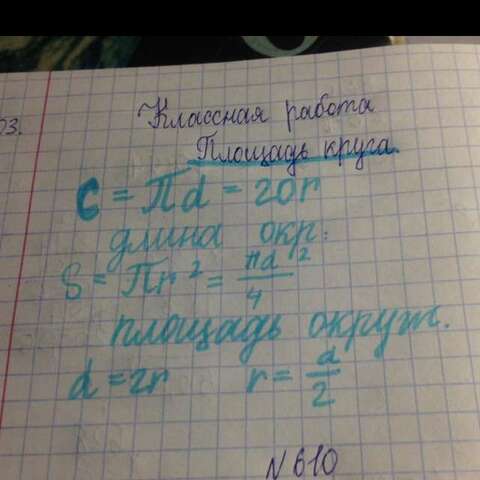 03.
Классная работа
Площадь круга.
C = Пd = 20r
длина окр.
S = Пr² = пd²/4
площадь окруж.
d = 2r r = d/2
N 610